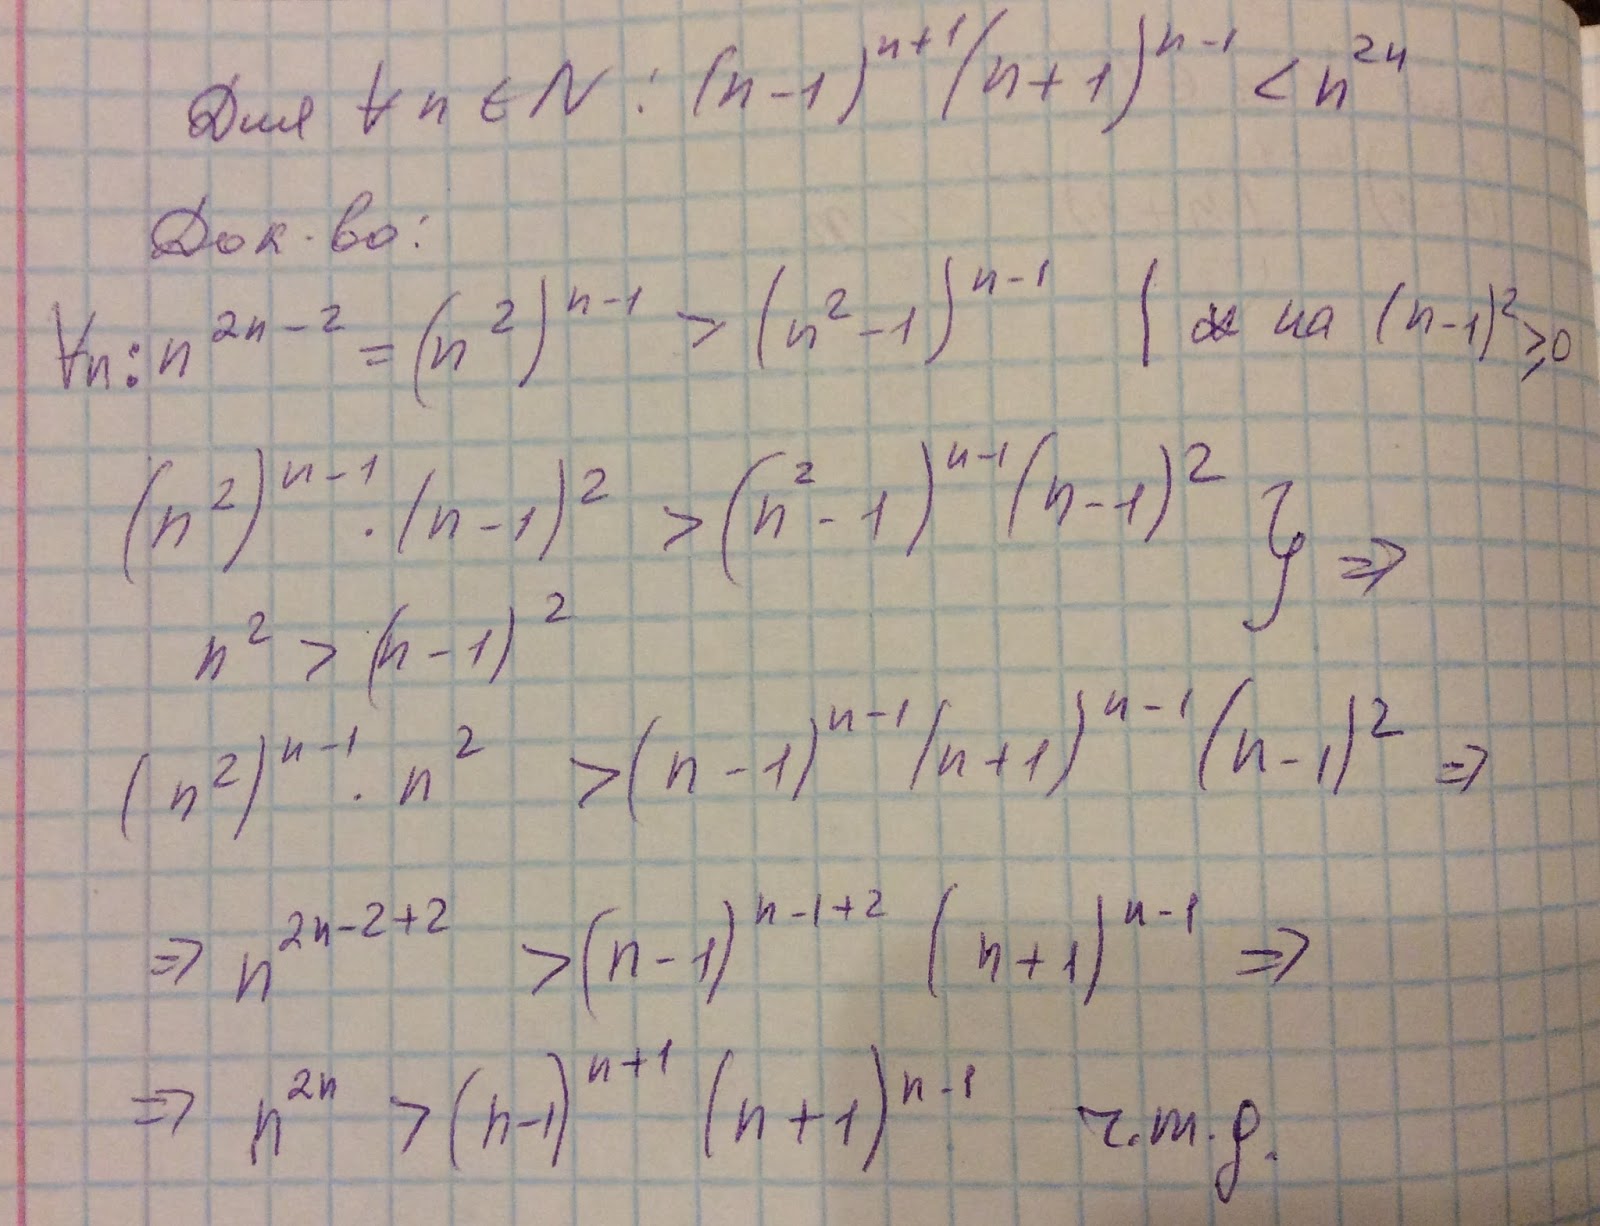 Для ∀ n ∈ N : (n-1)^{n+1} (n+1)^{n-1} < n^{2n}
Док-во:
∀n: n^{2n-2} = (n^2)^{n-1} > (n^2-1)^{n-1} | ж на (n-1)^2 ⩾ 0
(n^2)^{n-1} · (n-1)^2 > (n^2-1)^{n-1} (n-1)^2 } ⇒
n^2 > (n-1)^2
(n^2)^{n-1} · n^2 > (n-1)^{n-1} (n+1)^{n-1} (n-1)^2 ⇒
⇒ n^{2n-2+2} > (n-1)^{n-1+2} (n+1)^{n-1} ⇒
⇒ n^{2n} > (n-1)^{n+1} (n+1)^{n-1} ч.т.д.